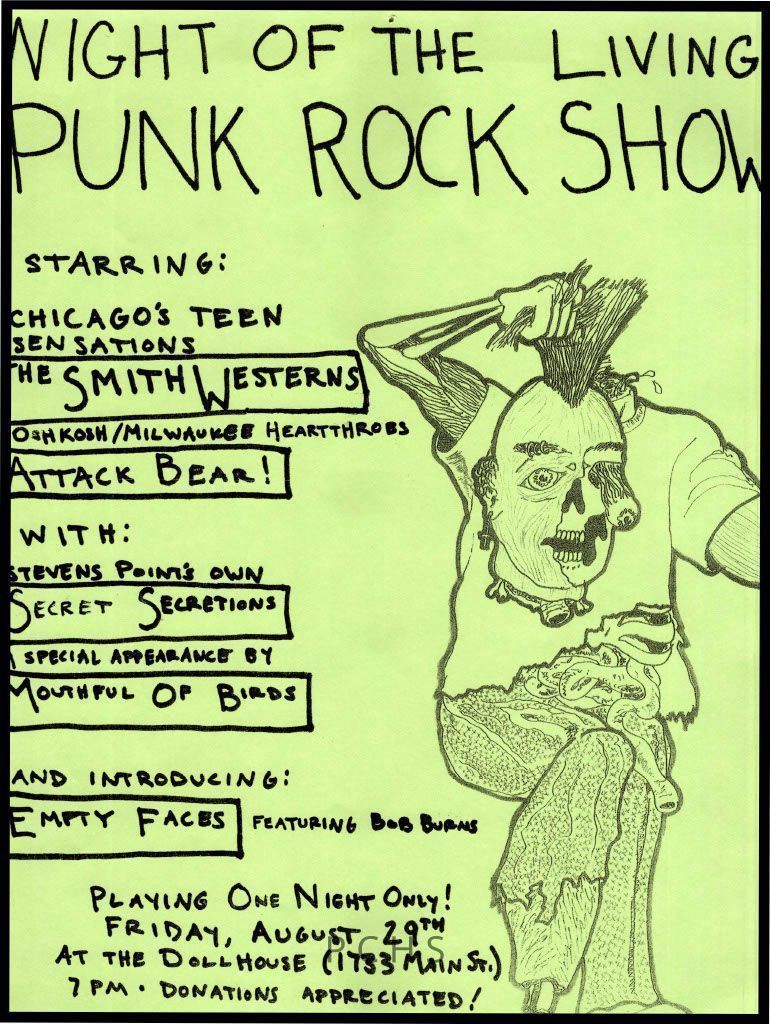 NIGHT OF THE LIVING
PUNK ROCK SHOW
STARRING:
CHICAGO'S TEEN
SENSATIONS
THE SMITH WESTERNS
OSHKOSH/MILWAUKEE HEARTTHROBS
ATTACK BEAR!
WITH:
STEVENS POINT'S OWN
SECRET SECRETIONS
A SPECIAL APPEARANCE BY
MOUTHFUL OF BIRDS
AND INTRODUCING:
EMPTY FACES FEATURING BOB BURNS
PLAYING ONE NIGHT ONLY!
FRIDAY, AUGUST 29TH
PCHS
AT THE DOLLHOUSE (1733 MAIN ST.)
7 PM • DONATIONS APPRECIATED!